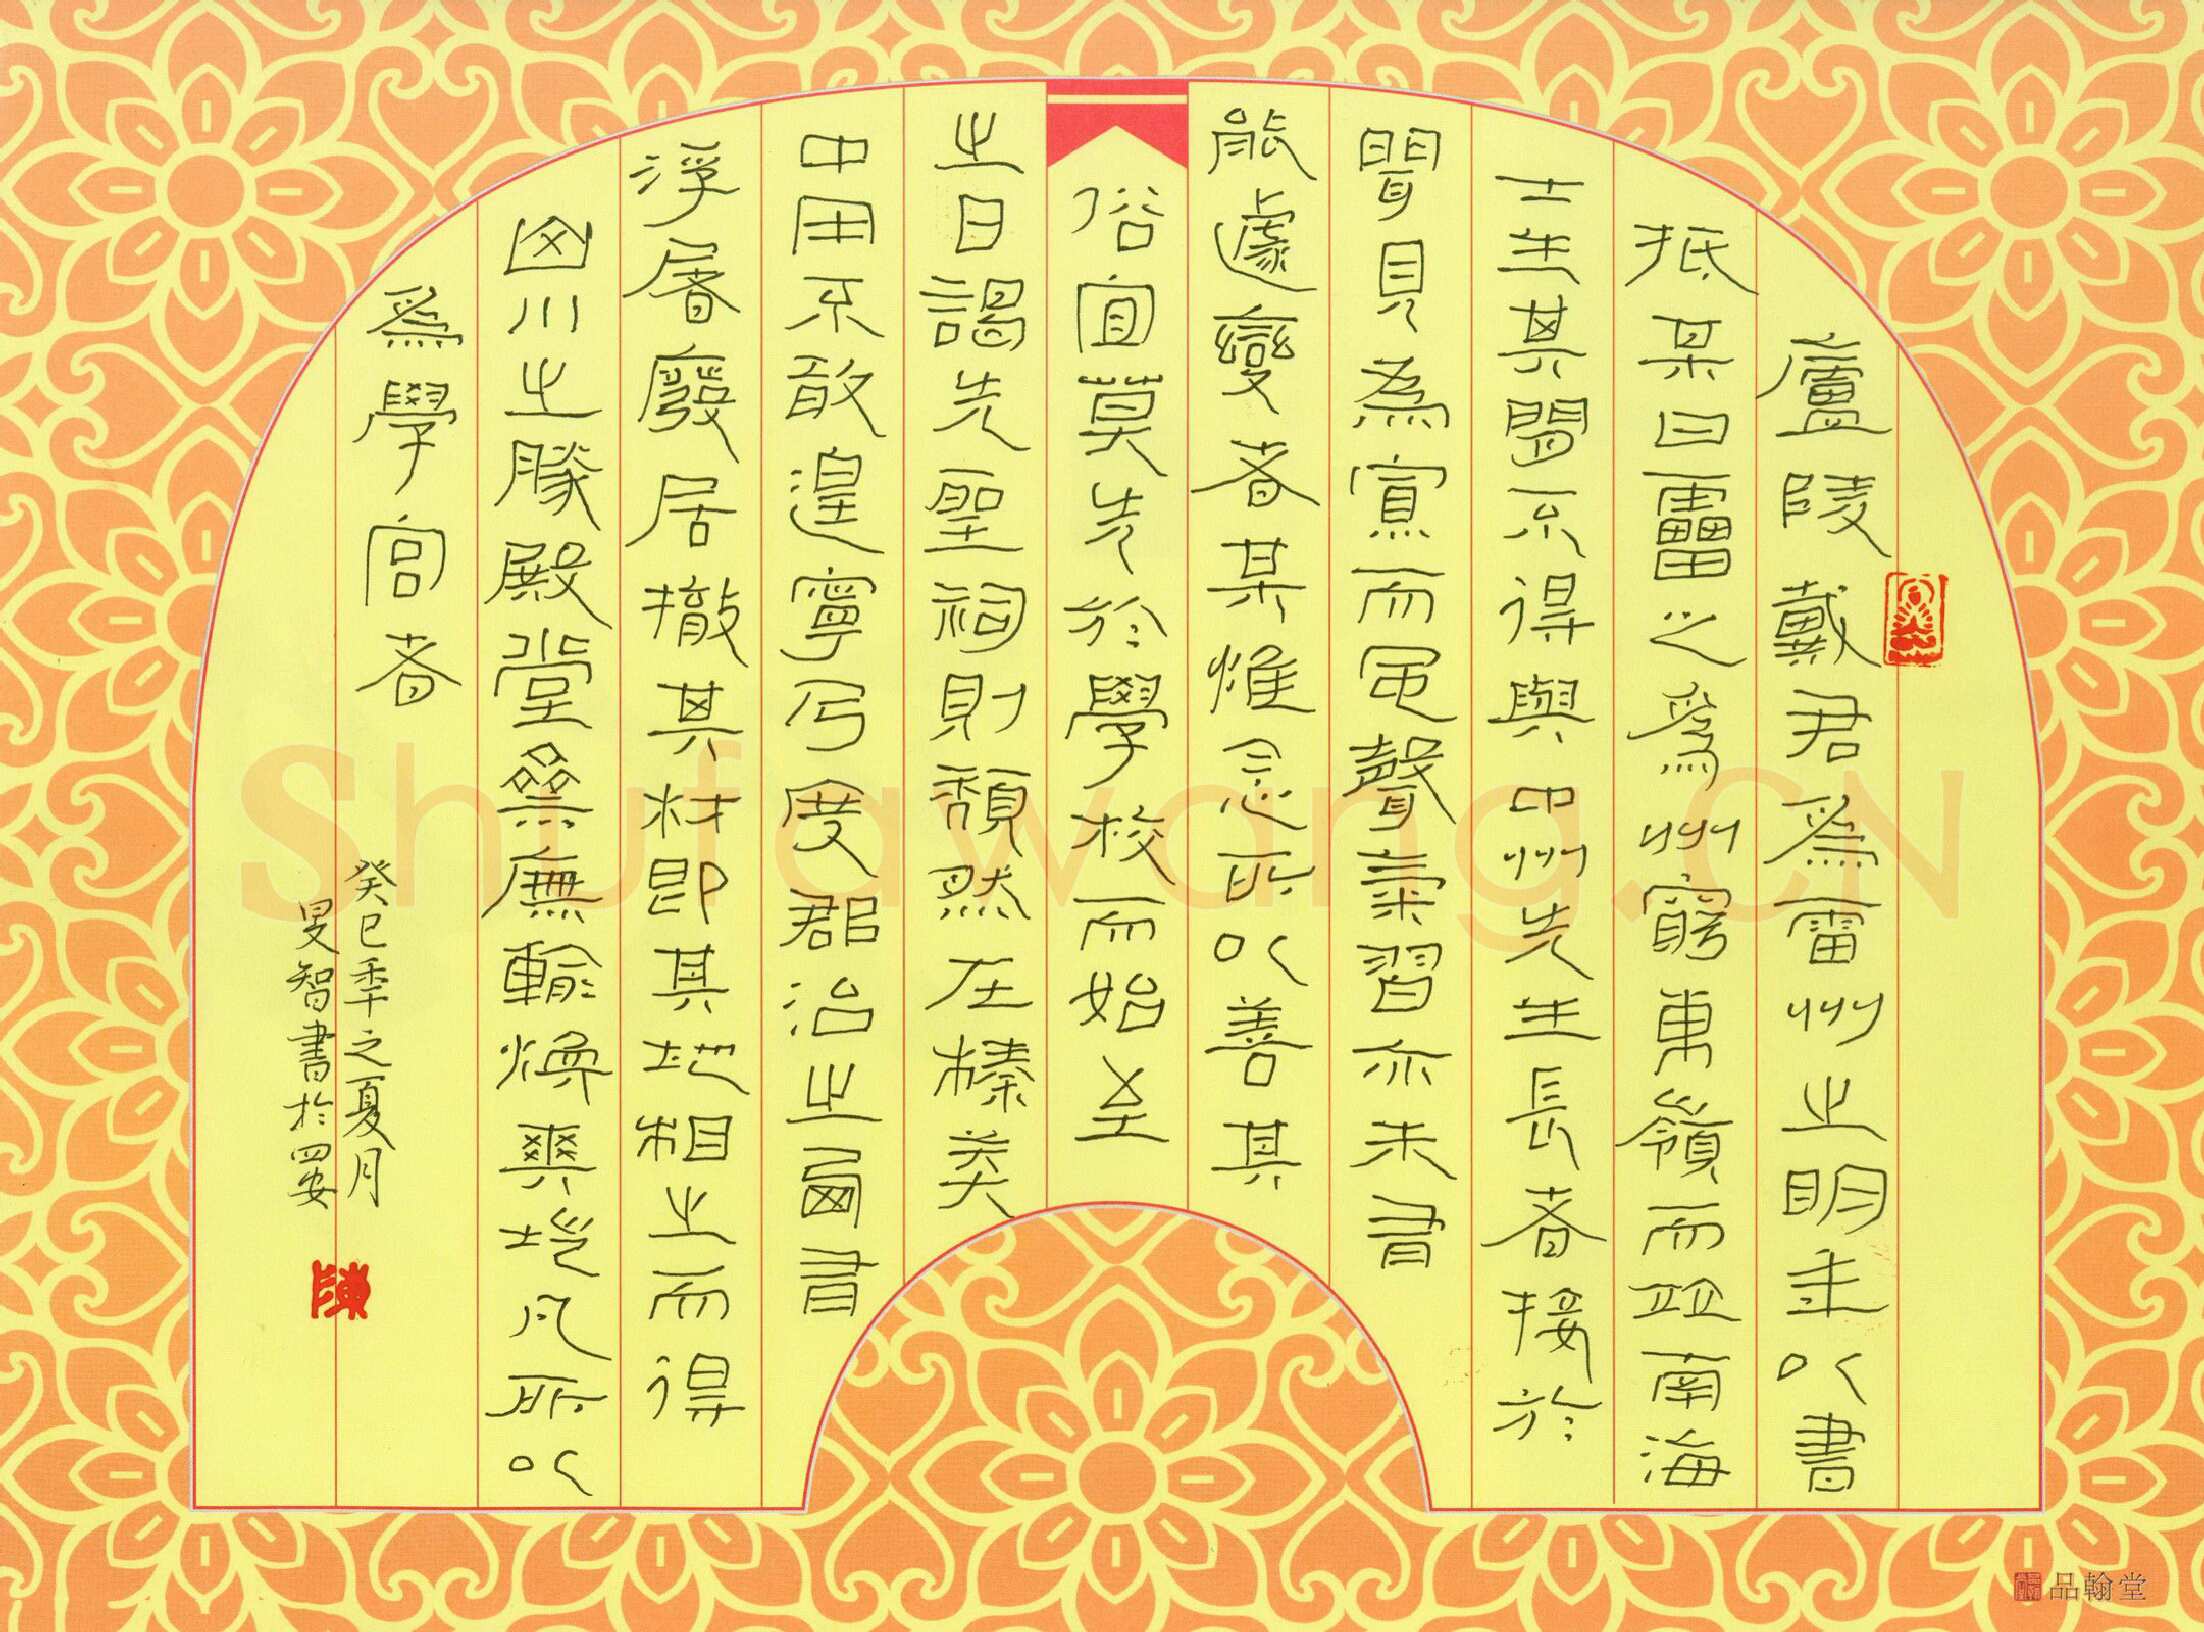 廬陵戴君爲雷州之明年以書
抵某曰靁之爲州窮東嶺而竝南海
士生其間不得與中州先生長者接於
聞見為寡而風聲氣習亦未有
能遽變者某惟念所以善其
俗宜莫先於學校而始至
之日謁先聖祠則頹然在榛莽
中用不敢遑寧乃度郡治之西有
浮屠廢居撤其材即其地相之而得
川之勝殿堂廡輪煥爽塏凡所以
爲學宮者
癸巳年之夏月
旻智書於四安
陳
Shufawang.CN
品翰堂